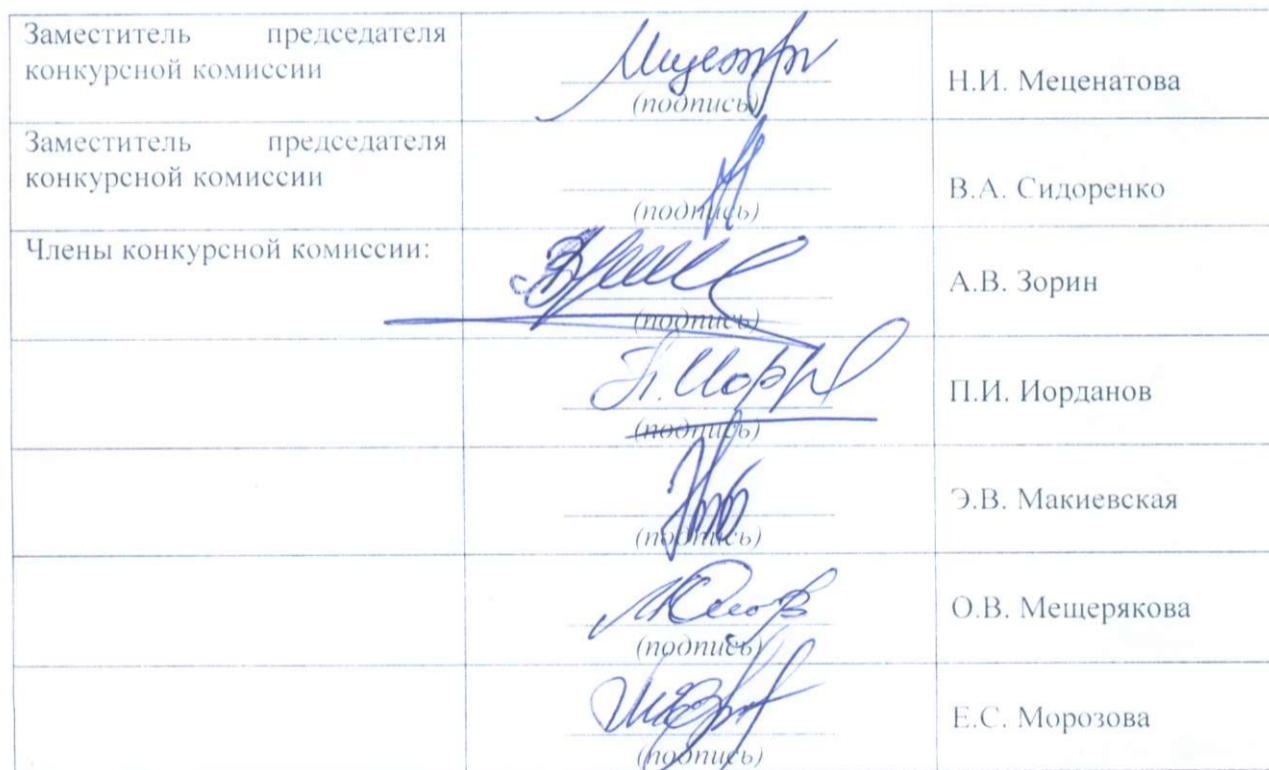 Заместитель председателя
конкурсной комиссии
(подпись)
Н.И. Меценатова
Заместитель председателя
конкурсной комиссии
(подпись)
В.А. Сидоренко
Члены конкурсной комиссии:
(подпись)
А.В. Зорин
(подпись)
П.И. Иорданов
(подпись)
Э.В. Макиевская
(подпись)
О.В. Мещерякова
(подпись)
Е.С. Морозова